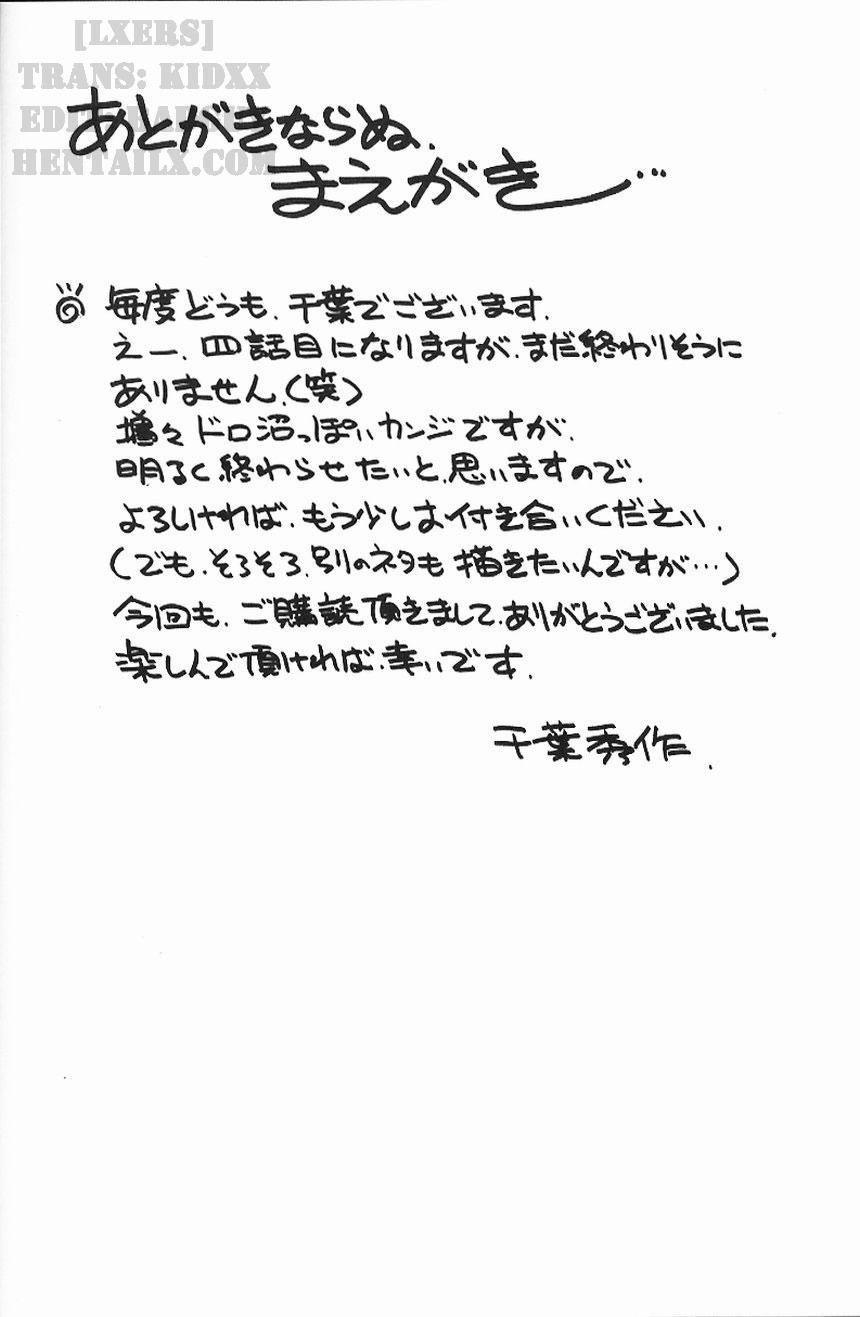 [LXERS]
TRANS: KIDXX
HENTAILX.COM
あとがきならぬ、
まえがき…
毎度どうも、千葉でございます。
えー、四話目になりますが、まだ終わりそうに
ありません。(笑)
増々ドロ沼っぽいカンジですが、
明るく終わらせたいと、思いますので、
よろしければ、もう少しお付き合いください。
(でも、そろそろ、別のネタも描きたいんですが…)
今回も、ご購読頂きまして、ありがとうございました。
楽しんで頂ければ、幸いです。
千葉秀作.